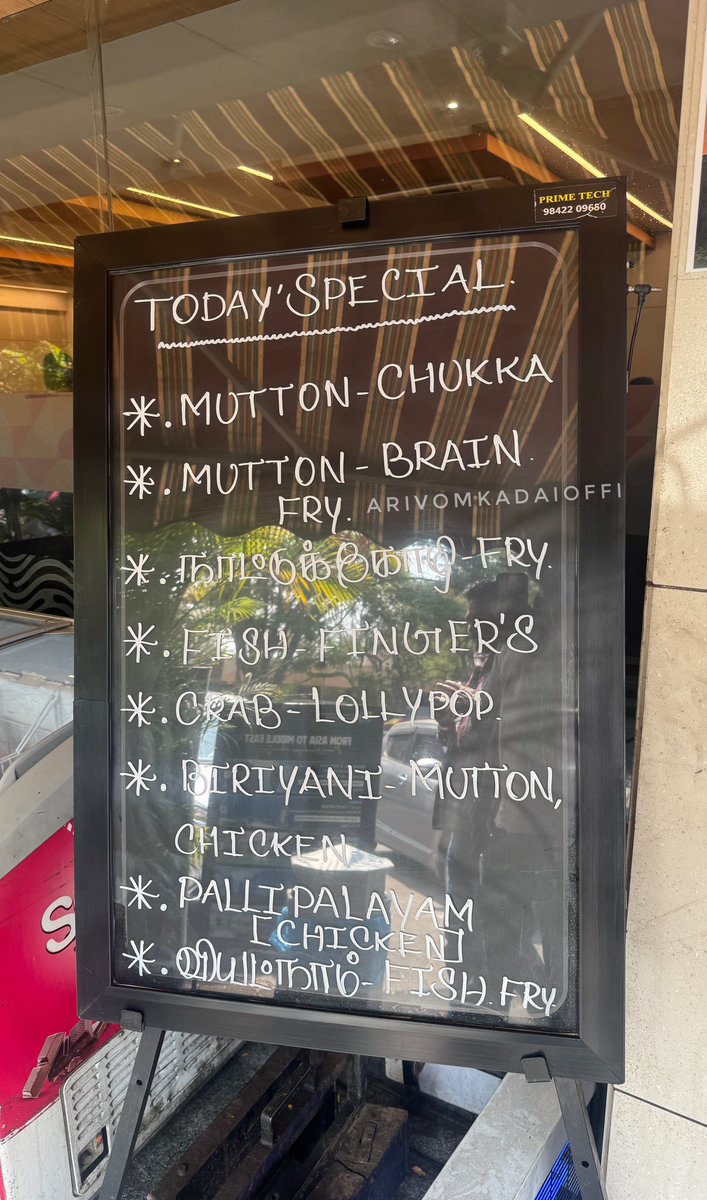 PRIME TECH
98422 09650
TODAY'SPECIAL.
*. MUTTON-CHUKKA
*. MUTTON-BRAIN.
FRY.
ARIVOMKADAIOFFI
*. நாட்டுக்கோழி-FRY.
*. FISH-FINGER'S
*. CRAB-LOLLYPOP.
FROM ASIA TO MIDDLE EAST
*. BIRIYANI-MUTTON,
CHICKEN
*. PALLIPALAYAM
[CHICKEN]
*. வியட்நாம்-FISH.FRY